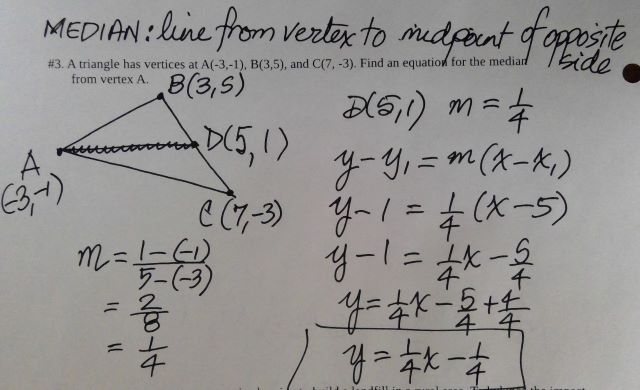 MEDIAN: line from vertex to midpoint of opposite
side
#3. A triangle has vertices at A(-3,-1), B(3,5), and C(7, -3). Find an equation for the median
from vertex A.
B(3,5)
D(5,1)
A
(-3,-1)
C(7,-3)
m = 1-(-1)
5-(-3)
= 2
8
= 1
4
D(5,1) m = 1/4
y-y₁ = m(x-x₁)
y-1 = 1/4 (x-5)
y-1 = 1/4x - 5/4
y = 1/4x - 5/4 + 4/4
y = 1/4x - 1/4